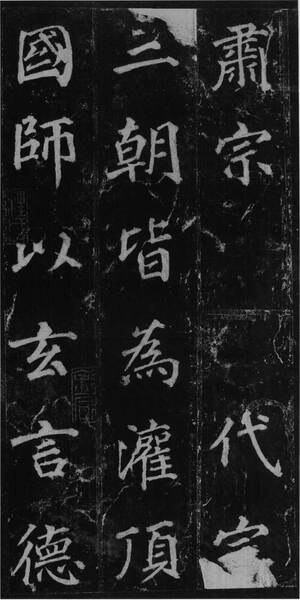 肅宗代宗
二朝皆為灌頂
國師以玄言德